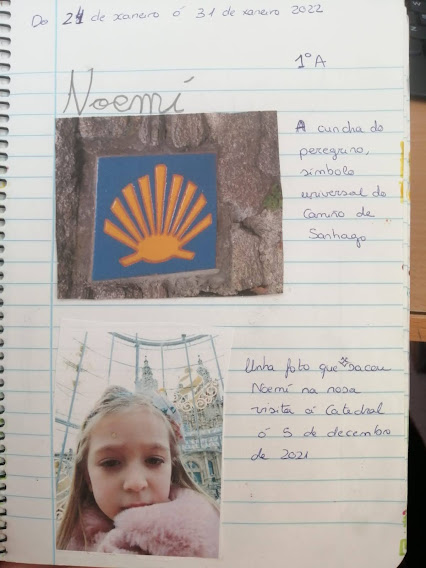 Do 24 de xaneiro ó 31 de xaneiro 2022
1ºA
Noemí
A cuncha do
peregrino,
símbolo
universal do
Camiño de
Santiago
Unha foto que sacou
Noemí na nosa
visita á Catedral
ó 5 de decembro
de 2021